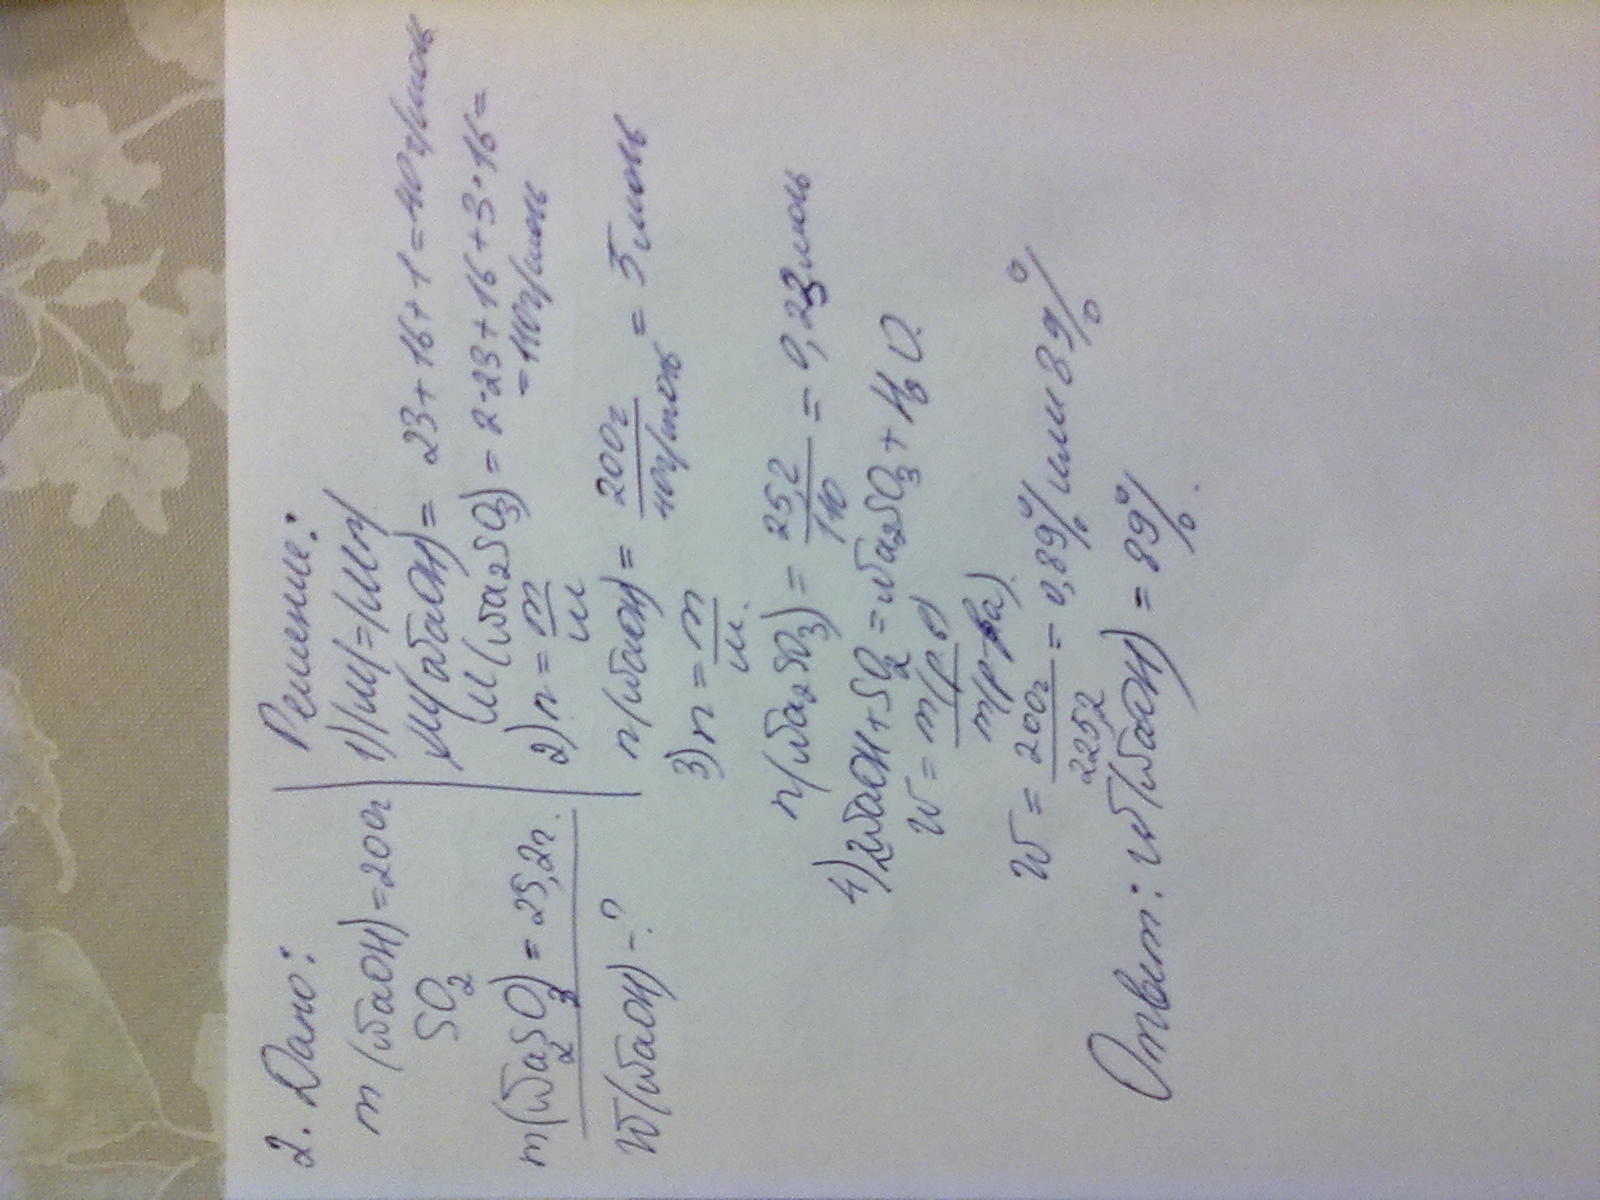 2. Дано:
m (NaOH) = 200г
SO2
m(Na2SO3) = 25,2г.
W(NaOH) - ?
Решение:
1) |M| = |Mr|
M(NaOH) = 23 + 16 + 1 = 40г/моль
M(Na2SO3) = 2·23 + 16 + 3·16 =
= 110г/моль
2) n = m/M
n(NaOH) = 200г/40г/моль = 5 моль
3) n = m/M.
n(Na2SO3) = 25,2/110 = 0,23 моль
4) 2NaOH + SO2 = Na2SO3 + H2O.
W = m(р.в)/m(р-ра)
W = 200г/225,2 = 0,89% или 89%
Ответ: W(NaOH) = 89%.